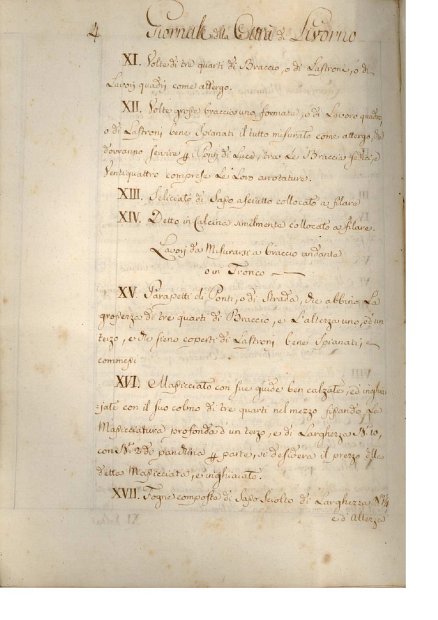 4 Giornale di Città di Livorno
XI. Volte di tre quarti di Braccio, o di Lastroni, o di
Lavori quadri come attergo.
XII. Volte grosse braccio uno formate, o di Lavoro quadro
o di Lastroni bene Spianati il tutto misurato come attergo,
dovranno servire Ponti di Luce tra Le Braccia sei, e
Ventiquattro comprese Le Loro arrotature.
XIII. Seliciato di Sasso asciutto collocato a filare
XIV. Detto in Calcina similmente collocato a filare.
Lavori da Misurarsi a braccio andante
o in Tronco
XV. Parapetti di Ponti, o di Strada, che abbino La
grossezza di tre quarti di Braccio, e L'altezza uno, ed un
terzo, e che sieno coperti di Lastroni bene Spianati, e
commessi
XVI. Massicciato con sue guide ben calzate, ed inghia-
=jato con il suo colmo di tre quarti nel mezzo fissando La
Massicciatura profonda d'un terzo, e di Larghezza Bª 10,
con Bª due panchina parte, si desidera il prezzo della
detta Massicciata, e inghiaiata.
XVII. Fogne composte di Sasso Sciolto di Larghezza
ed Altezza